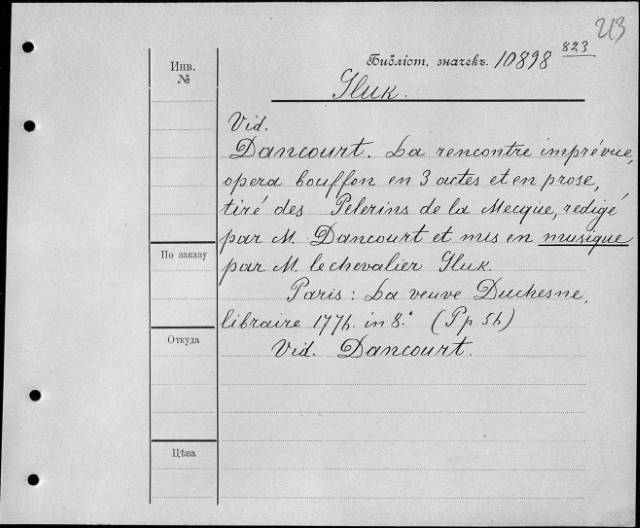 213
Инв. №
Библіот. значекъ. 10898 823
Gluk.
Vid.
Dancourt. La rencontre imprévue,
opera bouffon en 3 actes et en prose,
tiré des Pelerins de la Mecque, redigé
par M. Dancourt et mis en musique
По заказу
par M. le chevalier Gluk.
Paris: La veuve Duchesne,
libraire 1776. in 8.° (Pp. 56)
Откуда
Vid. Dancourt.
Цѣна